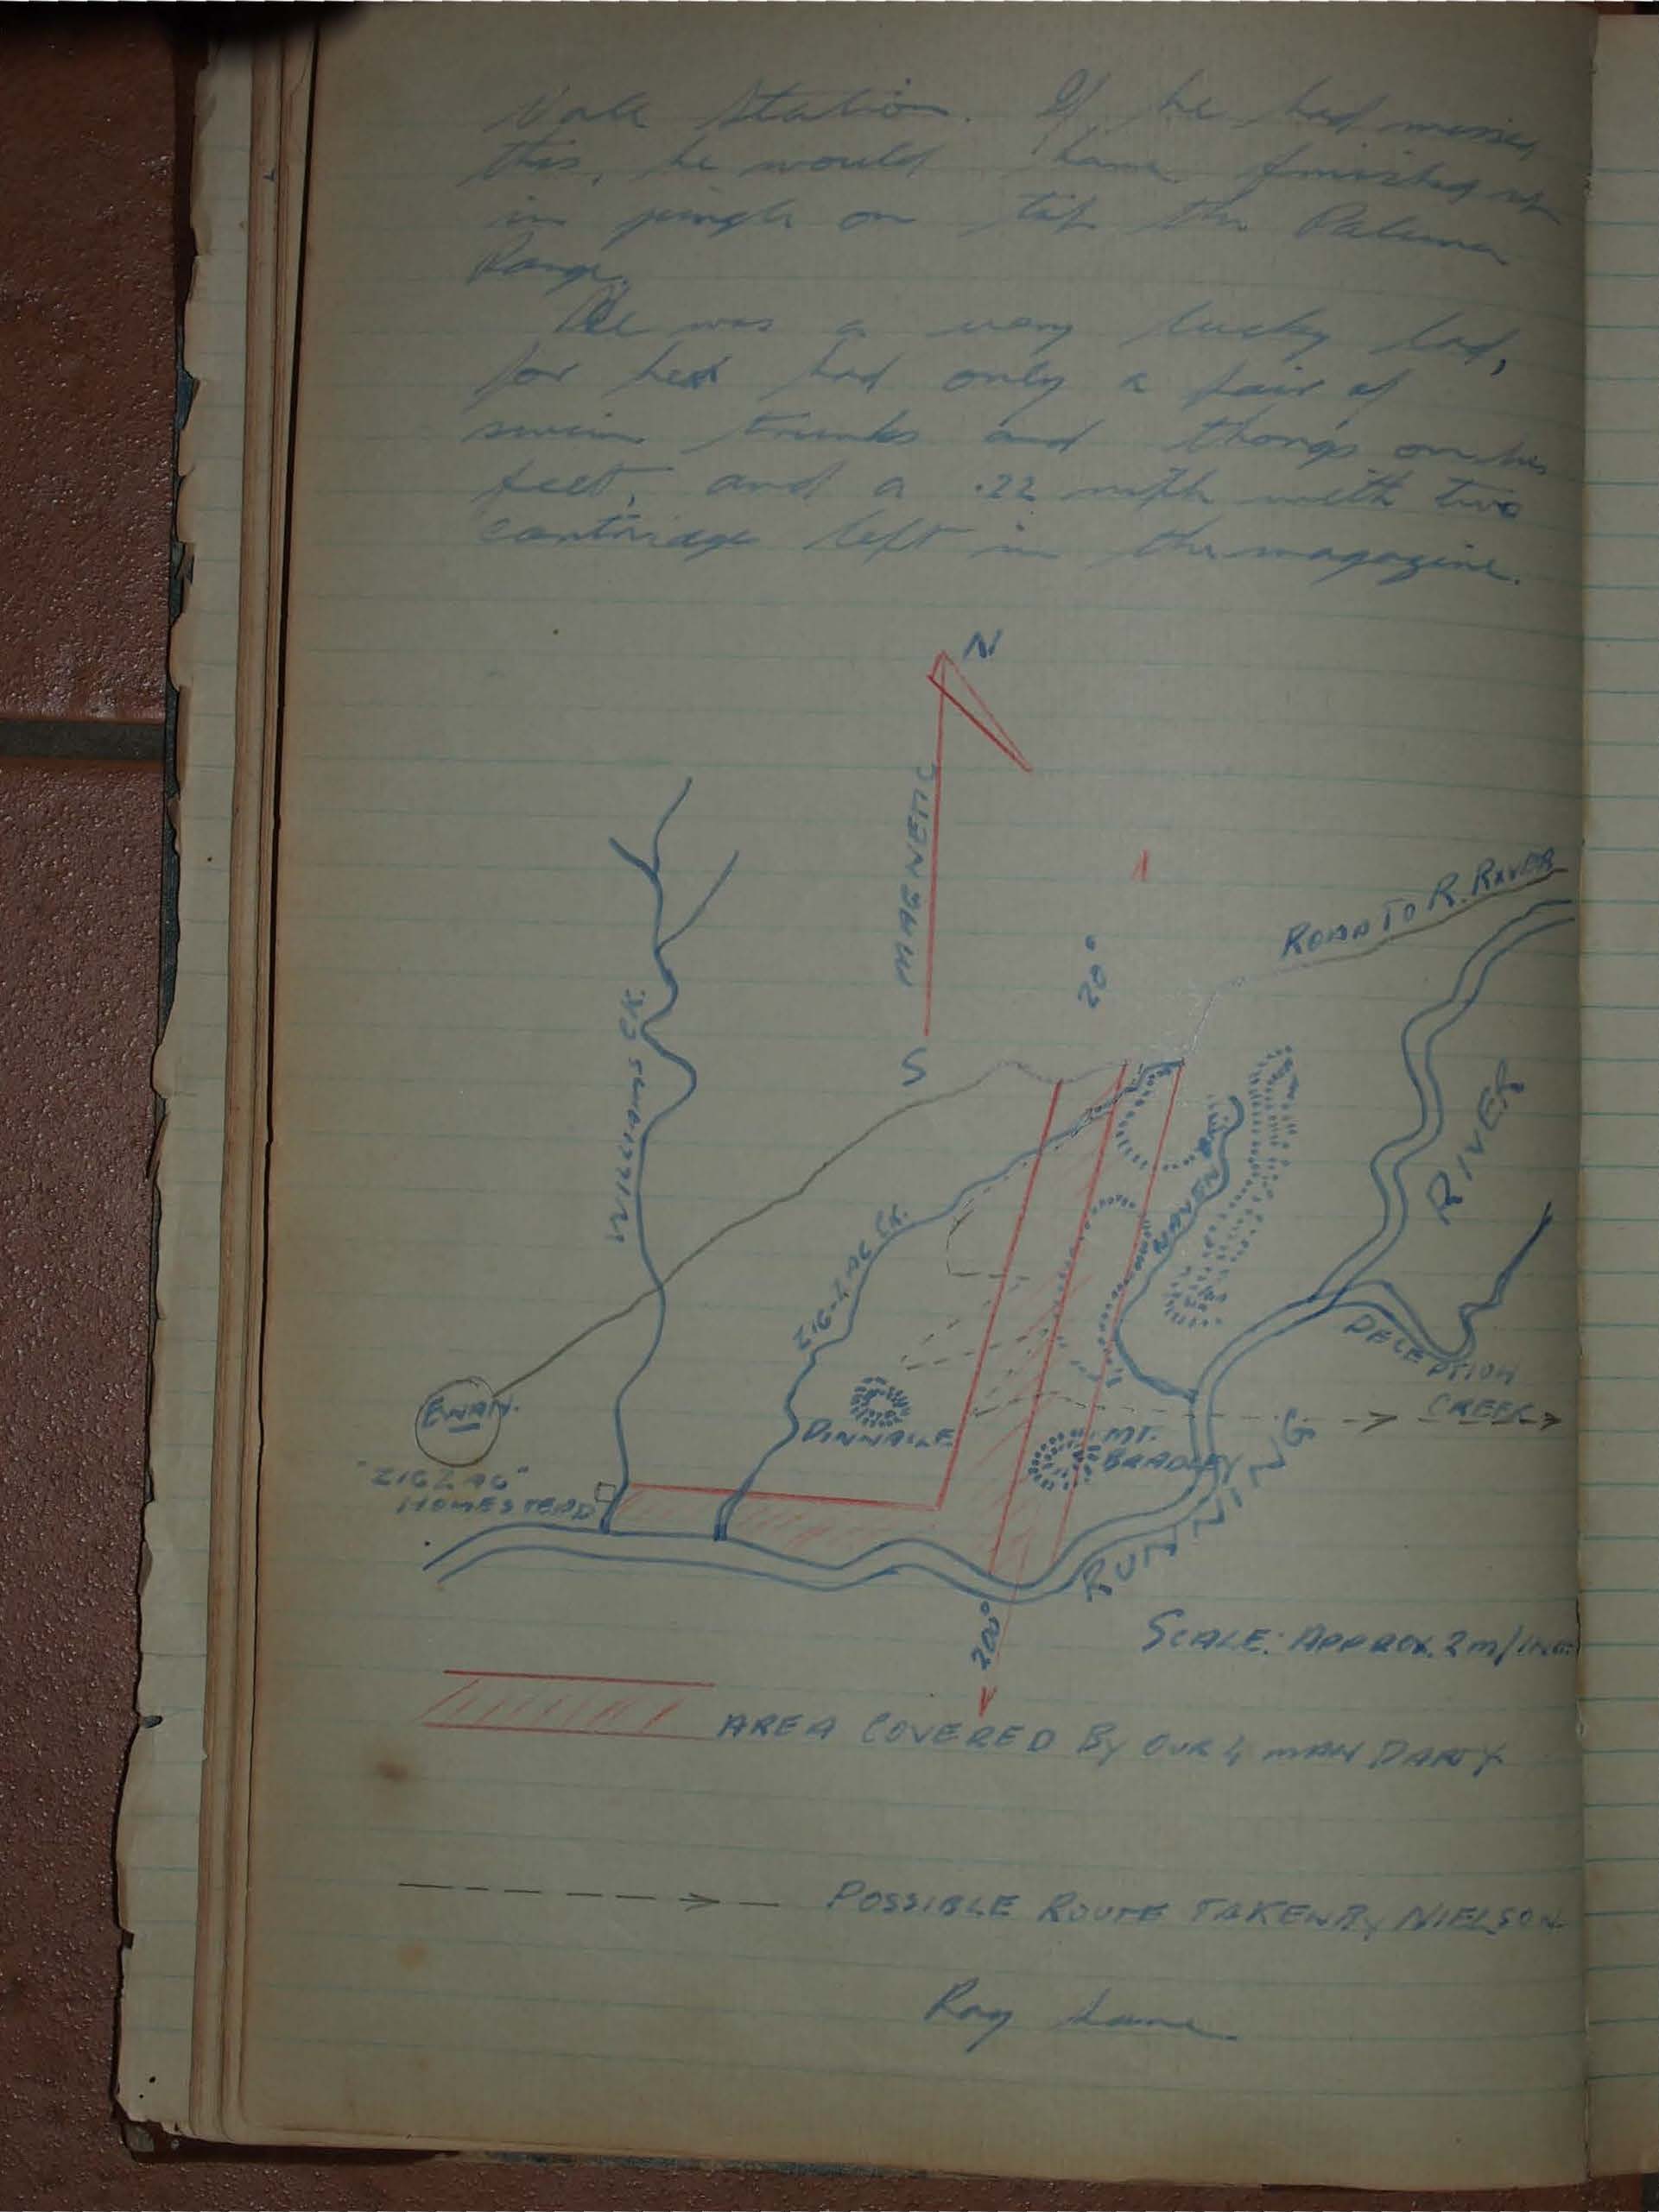 Vale Station. If he had missed
this, he would have finished up
in jungle on top the Paluma
Range.
He was a very lucky lad,
for he had only a pair of
swim trunks and thongs on his
feet, and a .22 rifle with two
cartridge left in the magazine.
N
MAGNETIC
S
20°
ROAD TO R. RIVER
WILLIAMS CK.
RIVER
ZIG-ZAG CK.
RAVEN
DECEPTION
CREEK
EWAN.
PINNACLE
MT.
BRADLEY
"ZIGZAG"
HOMESTEAD
RUNNING
200°
SCALE: APPROX. 2m/inch
AREA COVERED BY OUR 4 MAN PARTY
POSSIBLE ROUTE TAKEN BY NIELSON
Ray